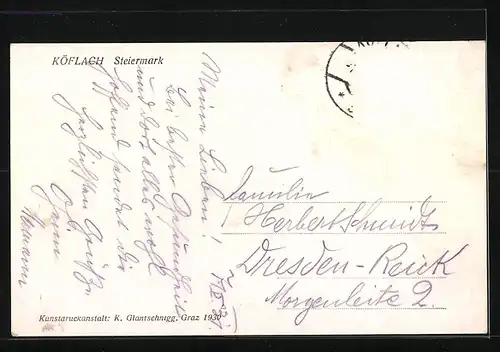 KÖFLACH Steiermark
Meine Lieben!
bei bester Gesundheit
und dort alles wohl
hoffend sendet Dir
herzlichsten Gruß
Hermann
Familie
Herbert Schmidt
Dresden-Reick
Morgenleite 2.
Kunstdruckanstalt: K. Glantschnigg, Graz 1930